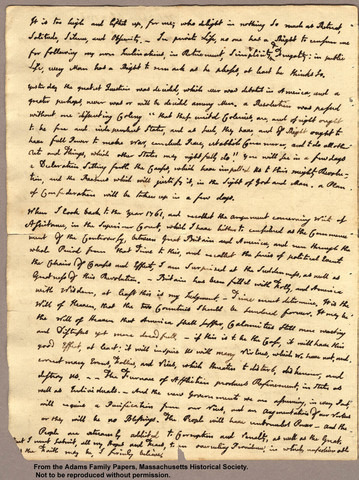 It is too high and lifted up, for me, who delight in nothing so much as Retreat,
Solitude, Silence, and Obscurity. In private Life, no one has a Right to censure me
for following my own Inclinations, in Retirement, Simplicity, Frugality: in public
Life, every Man has a Right to remark as he pleases, at least he thinks so.
Yesterday the greatest Question was decided, which ever was debated in America, and a
greater perhaps, never was or will be decided among Men. a Resolution was passed
without one dissenting Colony "that these united Colonies, are, and of right ought
to be free and independent States, and as such, they have, and of Right ought to
have full Power to make War, conclude Peace, establish Commerce, and to do all other
Acts and Things, which other States may rightfully do." You will see in a few days
a Declaration setting forth the Causes, which have impell'd Us to this mighty Revolu-
tion, and the Reasons which will justify it, in the Sight of God and Man. a Plan
of Confederation will be taken up in a few days.
When I look back to the Year 1761, and recollect the Argument concerning Writs of
Assistance, in the Superiour Court, which I have hitherto considered as the Commence-
ment of the Controversy, between Great Britain and America, and run through the
whole Period from that Time to this, and recollect the series of political Events,
the Chain of Causes and Effects, I am surprized at the Suddenness, as well as
Greatness of this Revolution. Britain has been fill'd with Folly, and America
with Wisdom, at least this is my Judgment. Time must determine. It is the
Will of Heaven, that the two Countries should be sundered forever. It may be
the Will of Heaven that America shall suffer Calamities still more wasting
and Distresses yet more dreadfull. if this is to be the Case, it will have this
good Effect, at least: it will inspire Us with many Virtues, which We have not, and
correct many Errors, Follies, and Vices, which threaten to disturb, dishonour, and
destroy Us. The Furnace of Affliction produces Refinement, in States as
well as Individuals. And the new Governments we are assuming, in every Part,
will require a Purification from our Vices, and an Augmentation of our Virtues
or they will be no Blessings. The People will have unbounded Power. And the
People are extreamly addicted to Corruption and Venality, as well as the Great.
But I must submit all my Hopes and Fears, to an overruling Providence, in which, unfashionable as
the Faith may be, I firmly believe.
From the Adams Family Papers, Massachusetts Historical Society.
Not to be reproduced without permission.